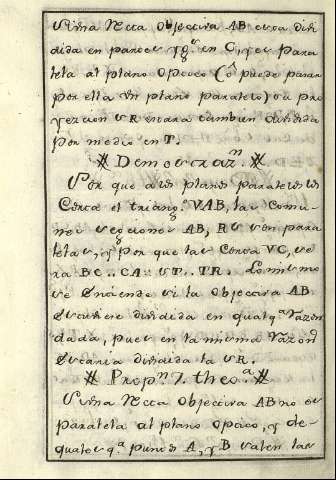 Si una Recta Objectiva AB essa divi
dida en partes yg.s en C, y es para
lela al plano Optico (ô puede pasar
por ella un plano paralelo) su pro
yeccion SR estara tambien dividida
por medio en T.
Demostraz.n
Por que a los planos paralelos los
Corta el triang.o VAB, las Comu
nes secciones AB, RS son para
lelas, y por que las Corta VC, se
ra BC.. CA:: ST.. TR. Lo mismo
se Entiende si la Objectiva AB
Estuviere dividida en qualq.a razon
dada, pues en la misma razon
Estaria dividida la SR.
Prop.n 7. theo.a
Si una Recta Objectiva AB no es
paralela al plano Optico, y de
quales q.a puntos A, y B salen las